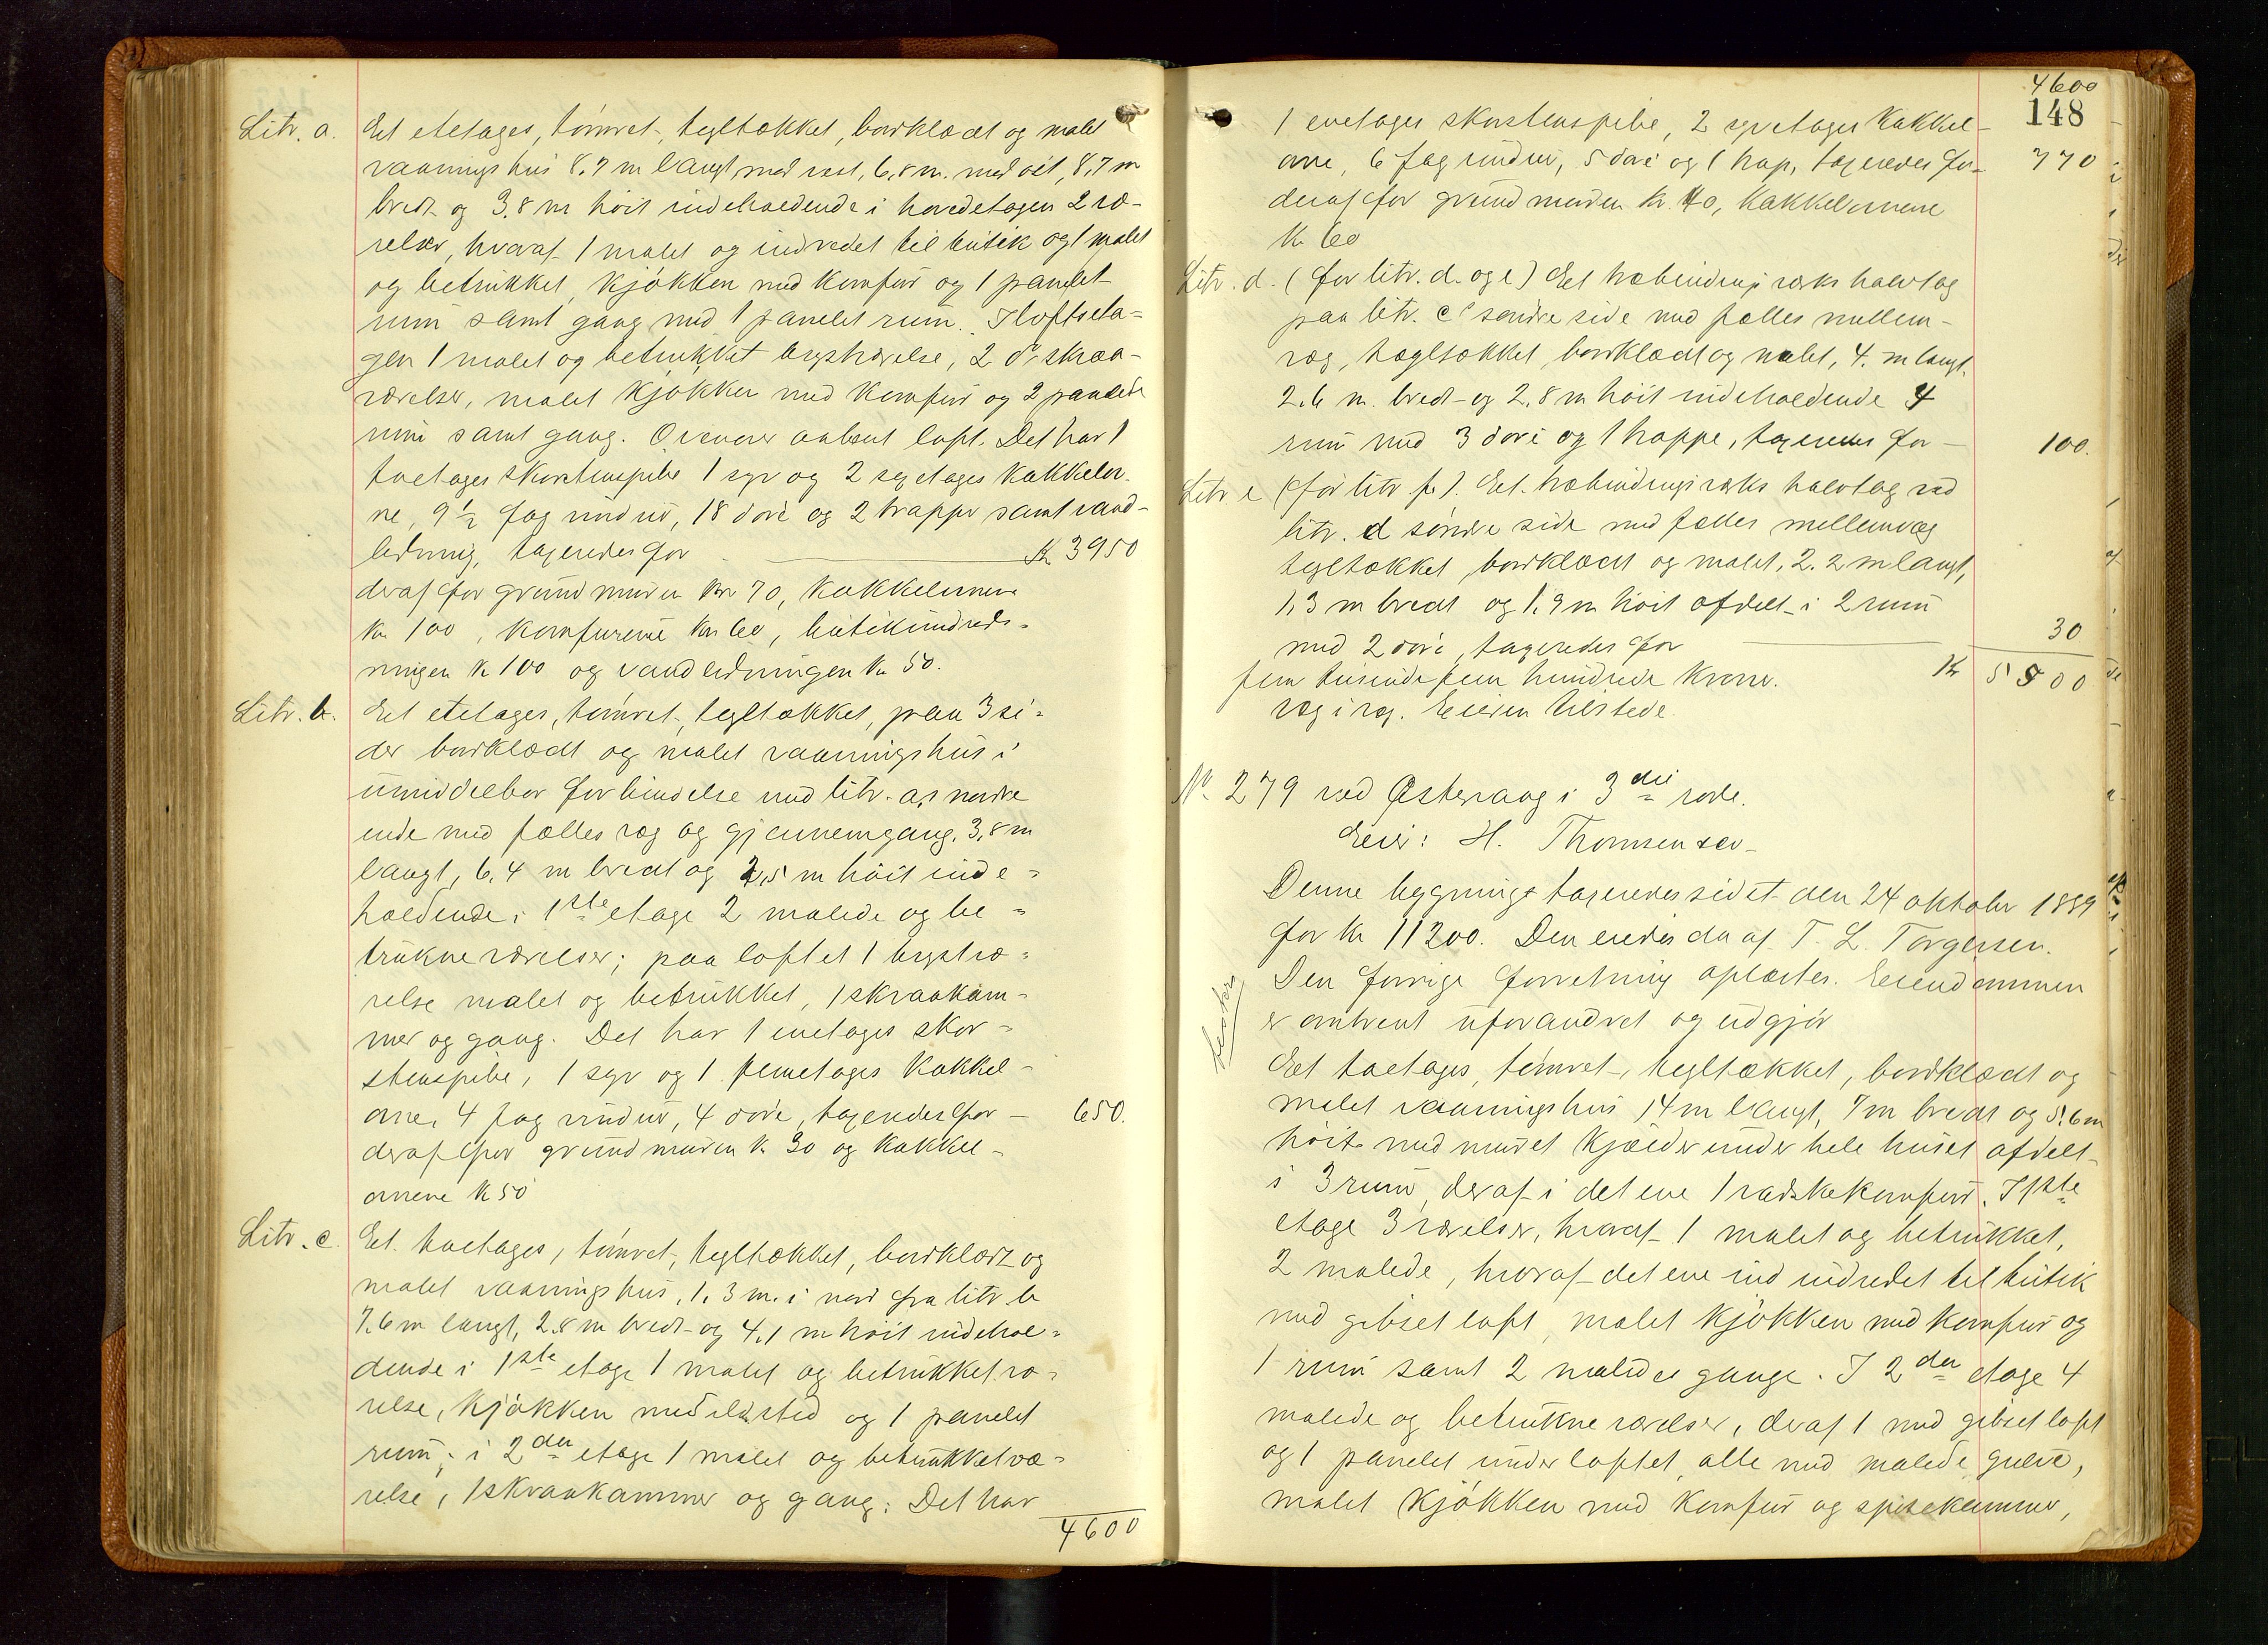 Litr. a. Et etetages, tømret, tegltækket, bordklædt og malet
vaaningshus 8,7 m langt mod vest, 6,8 m. mod øst, 8,7 m
bredt og 3,8 m høit indeholdende i hovedetagen 2 væ-
relser, hvoraf 1 malet og indredet til butik og 1 malet
og betrukket, kjøkken med komfur og 1 panelet
rum samt gang med 1 panelet rum. I loftseta-
gen 1 malet og betrukket kvistværelse, 2 do skraa-
værelser, malet kjøkken med komfur og 2 panelede
rum samt gang. Ovenover aabent loft. Det har 1
toetages skorstenspibe 1 syv og 2 sexetages kakkelov-
ne, 9 1/2 fag vinduer, 18 døre og 2 trapper samt vand-
ledning, taxeredes for Kr 3950
deraf for grundmuren kr 70, kakkelovnene
kr 100, komfurene kr 60, butikindred-
ningen kr 100 og vandledningen kr 50.
Litr. b. Et etetages, tømret, tegltækket, paa 3 si-
der bordklædt og malet vaaningshus i
umiddelbar forbindelse med litr. a,s nordre
ende med fælles væg og gjennemgang, 3,8 m
langt, 6,4 m bredt og 2,5 m høit inde-
holdende i 1ste etage 2 malede og be-
trukne værelser; paa loftet 1 kvistvæ-
relse malet og betrukket, 1 skraakam-
mer og gang. Det har 1 enetages skor-
stenspibe, 1 syv og 1 femetages kakkel-
ovne, 4 fag vinduer, 4 døre, taxeredes for 650.
deraf for grundmuren kr 30 og kakkel-
ovnene kr 50
Litr. c. Et toetages, tømret, tegltækket, bordklædt og
malet vaaningshus, 1,3 m. i nord fra litr. b
7,6 m langt, 2,8 m bredt og 4,1 m høit indehol-
dende i 1ste etage 1 malet og betrukket væ-
relse, kjøkken med ildsted og 1 panelet
rum; i 2den etage 1 malet og betrukket væ-
relse, 1 skraakammer og gang: Det har
4600
4600
148
1 enetages skorstenspibe, 2 syvetages kakkel-
ovne, 6 fag vinduer, 5 døre og 1 trap, taxeredes for 770
deraf for grundmuren kr. 40, kakkelovnene
kr 60
Litr. d. (for litr. d. og e) Et træbindingsværks halvtag
paa litr. c's søndre side med fælles mellem-
væg, tægltækket bordklædt og malet, 4. m langt,
2,6 m. bredt og 2,8 m høit indeholdende 4
rum med 3 døre og 1 trappe, taxeredes for 100.
Litr. e (før litr. f.). Et træbindingsværks halvtag ved
litr. d søndre side med fælles mellemvæg
tegltækket, bordklædt og malet, 2,2 m langt,
1,3 m bredt og 1,9 m høit afdelt i 2 rum
med 2 døre, taxeredes for 30
fem tusinde fem hundrede kroner. Kr 5500
væg i væg. Eieren tilstede.
No 279 ved Østervaag i 3die rode.
Eier: H. Thomsen sen
Denne bygning taxeredes sidst den 24 oktober 1889
for kr 11200. Den eiedes da af T. L. Torgersen.
Den forrige forretning oplæstes. Eiendommen
er omtrent uforandret og udgjør
Et toetages, tømret, tegltækket, bordklædt og
malet vaaningshus 14 m langt, 7 m bredt og 5,6 m
høit med muret kjælder under hele huset afdelt
i 3 rum, deraf i det ene 1 vadskekomfur. I 1ste
etage 3 værelser, hvoraf 1 malet og betrukket,
2 malede, hvoraf det ene ind indredet til butik
med gibset loft, malet kjøkken med komfur og
1 rum samt 2 malede gange. I 2den etage 4
malede og betrukne værelser, deraf 1 med gibset loft
og 1 panelet under loftet, alle med malede gulve,
malet kjøkken med komfur og spisekammer,